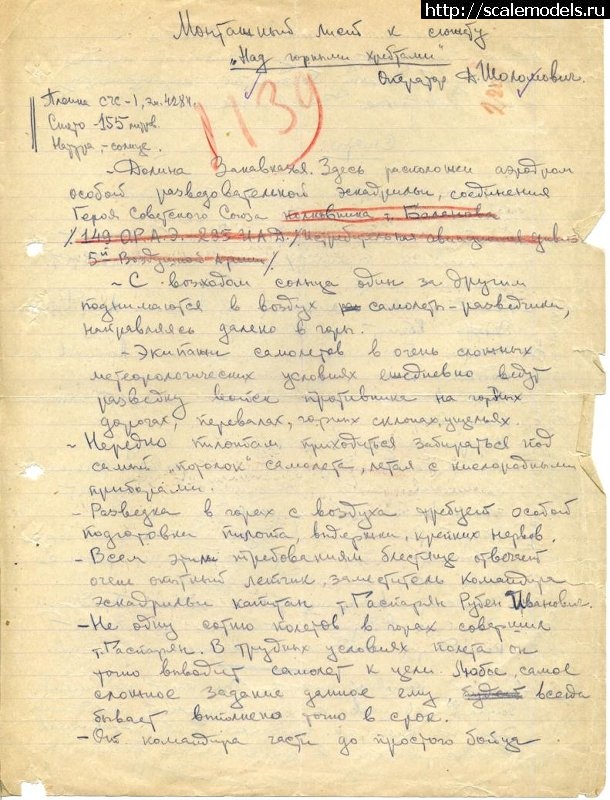 http://scalemodels.ru
Монтажный лист к сюжету
„Над горными хребтами"
Оператор А. Шоломович.
1139
Пленка СЧС-1, эм. 4284.
Снято -155 метров.
Натура, - солнце.
- Долина Закавказья. Здесь расположен аэродром
особой разведовательной эскадрильи, соединения
Героя Советского Союза полковника т. Баланова
/149 О.Р.А.Э. 295 И.А.Д. /Истребительная авиационная
5й Воздушной Армии/
- С восходом солнца один за другим
поднимаются в воздух самолеты-разведчики,
направляясь далеко в горы.
- Экипажи самолетов в очень сложных
метеорологических условиях ежедневно ведут
разведку войск противника на горных
дорогах, перевалах, горных склонах, ущельях.
- Нередко пилотам приходится забираться под
самый „потолок" самолета, летая с кислородными
приборами.
- Разведка в горах с воздуха требует особой
подготовки пилота, выдержки, крепких нервов.
- Всем этим требованиям блестяще отвечает
очень опытный летчик, заместитель командира
эскадрильи капитан т. Гаспарян Рубен Иванович.
- Не одну сотню полетов в горах совершил
т. Гаспарян. В трудных условиях полета он
точно выводит самолет к цели. Любое, самое
сложное задание данное ему будет всегда
бывает выполнено точно в срок.
- От командира части до простого бойца